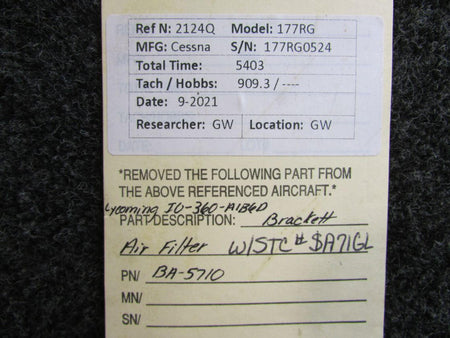 Ref N: 2124Q Model: 177RG
MFG: Cessna S/N: 177RG0524
Total Time: 5403
Tach / Hobbs: 909.3 / ----
Date: 9-2021
Researcher: GW Location: GW
*REMOVED THE FOLLOWING PART FROM
THE ABOVE REFERENCED AIRCRAFT.*
Lycoming IO-360-A1B6D
PART DESCRIPTION: Brackett
Air Filter W/STC# SA71GL
PN/ BA-5710
MN/
SN/